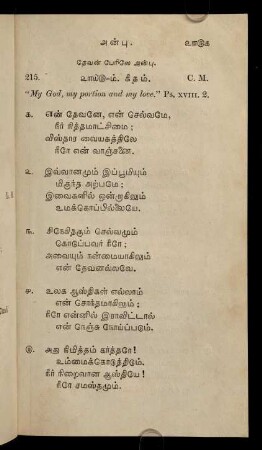 அன்பு. உாடுக
தேவன் பேரிலே அன்பு.
215. உாய௫-ம். கீதம். C. M.
"My God, my portion and my love." Ps. XVIII. 2.
க. என் தேவனே, என் செல்வமே,
நீர் நித்தமாட்சிமை;
விஸ்தார வையகத்திலே
நீரே என் வாஞ்சனே.
உ. இவ்வானமும் இப்பூமியும்
மிகுந்த அற்பமே;
இவைகளில் ஒன்றுகிலும்
உமக்கொப்பில்லையே.
௩. சிநேகிதரும் செல்வமும்
கொடுப்பவர் நீரே;
அவையும் நன்மையாகிலும்
என் தேவனல்லவே.
ச. உலக ஆஸ்திகள் எல்லாம்
என் சொந்தமாகினும்;
நீரே என்னில் இராவிட்டால்
என் நெஞ்சு நோய்ப்படும்.
௫. அந நிமித்தம் கர்த்தரே!
உம்மைக்கொடுத்திடும்.
நீர் நிறைவான ஆஸ்தியே!
நீரே சமஸ்தமும்.